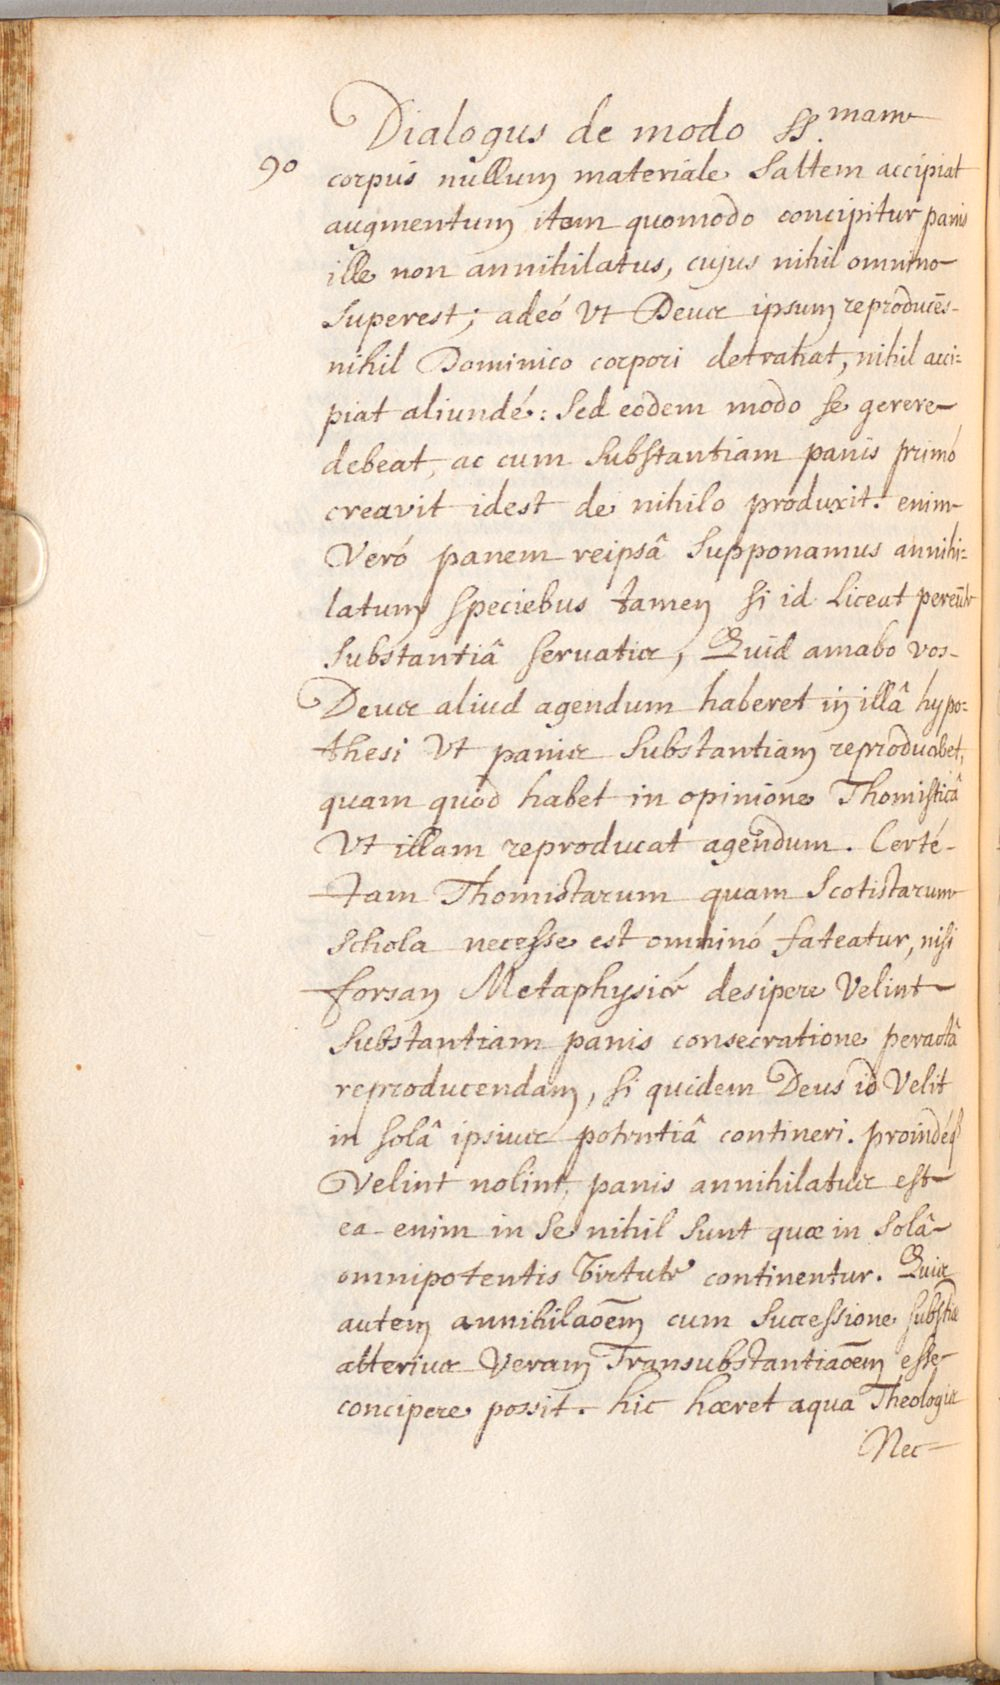 Dialogus de modo SS.mam
90
corpus nullum materiale saltem accipiat
augmentum item quomodo concipitur panis
ille non annihilatus, cujus nihil omnino
superest; adeó Vt Deus ipsum reproducēs
nihil Dominico corpori detrahat, nihil acci=
piat aliundé: Sed eodem modo se gerere
debeat, ac cum substantiam panis primó
creavit idest de nihilo produxit. enim
Veró panem reipsâ supponamus annihi=
latum speciebus tamen si id Liceat pereūte
substantiâ servatis, Quid amabo vos
Deus aliud agendum haberet in illâ hypo=
thesi Vt panis substantiam reproduceret,
quam quod habet in opinione Thomisticâ
Vt illam reproducat agendum. Certé
tam Thomistarum quam Scotistarum
schola necesse est omninó fateatur, nisi
forsan Metaphysicé desipere Velint
substantiam panis consecratione peractâ
reproducendam, si quidem Deus id Velit
in solâ ipsius potentiâ contineri. proindéq
Velint nolint, panis annihilatus est
ea enim in se nihil sunt quæ in solâ
omnipotentis Virtute continentur. Quis
autem annihilaōem cum successione substiæ
alterius Veram Transubstantiaōem esse
concipere possit. hic hæret aqua Theologis
Nec